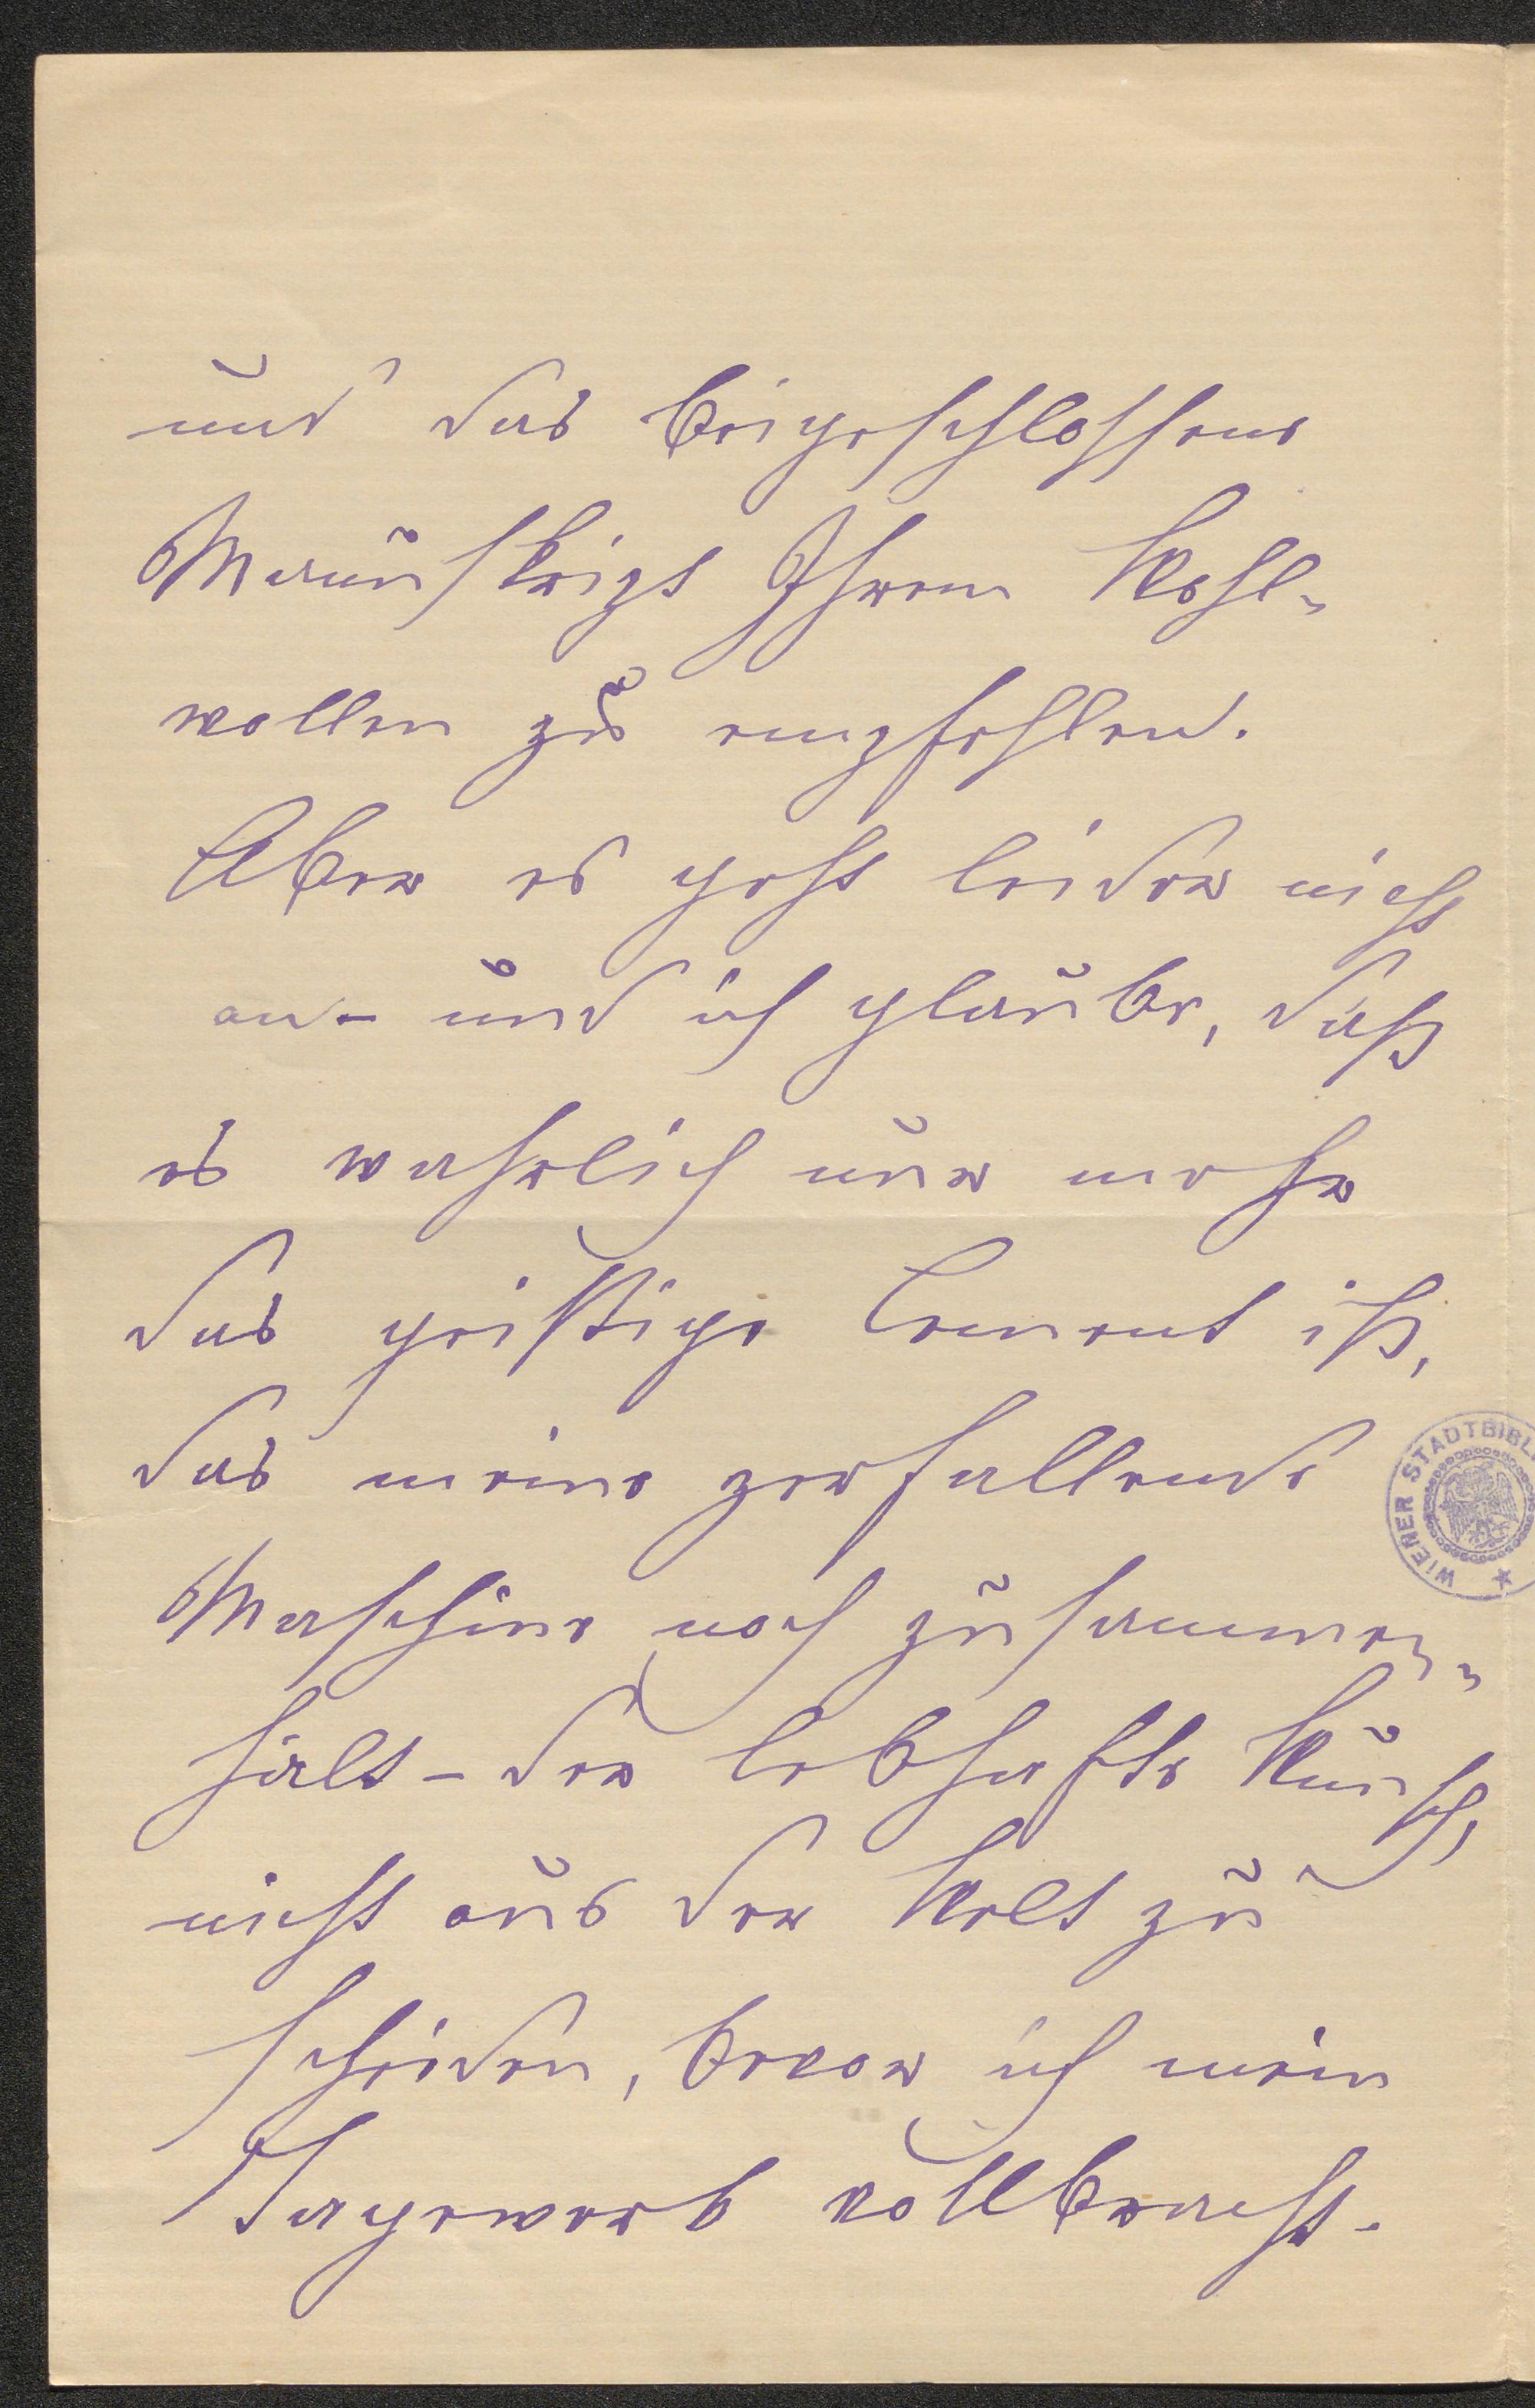 und das beigeschlossene
Manuskript Ihrem Wohl-
wollen zu empfehlen.
Aber es geht leider nicht
an – und ich glaube, daß
es wahrlich nur mehr
das geistige Cement ist,
das meine zerfallende
Maschine noch zusammen-
hält – der lebhafte Wunsch,
nicht aus der Welt zu
scheiden, bevor ich mein
Tagewerk vollbracht.
WIENER STADTBIBL